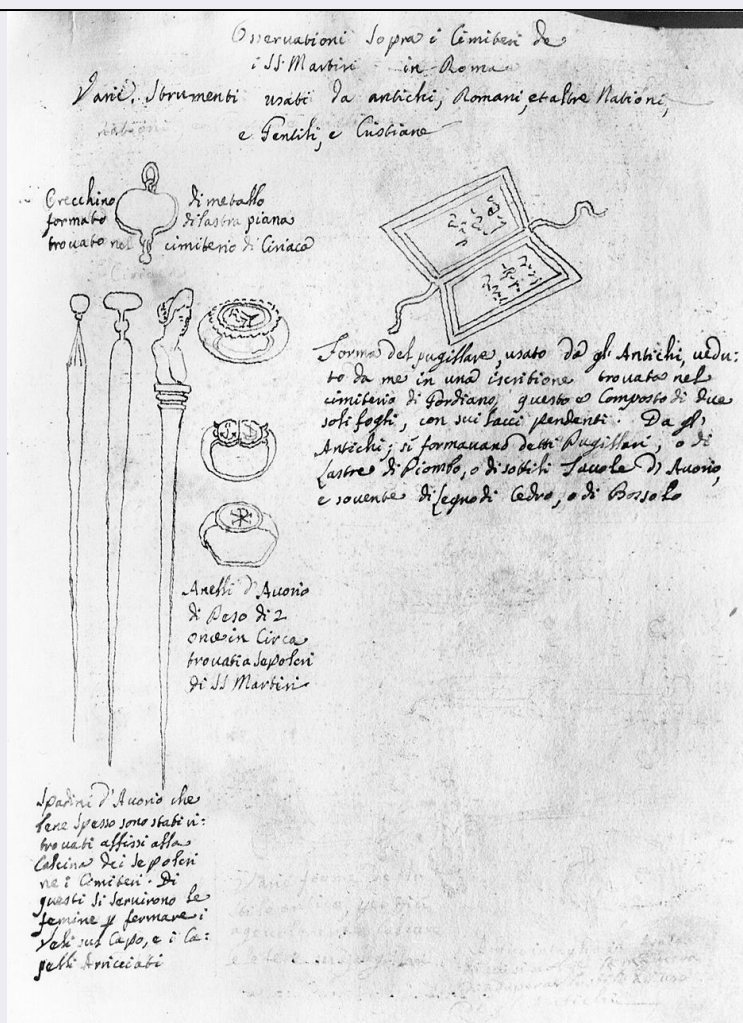 Osseruationi Sopra i Cimiteri de
i SS Martiri in Roma
Varii Strumenti usati da antichi, Romani, et altre Nationi,
e Gentili, e Cristiane
nationi
Orecchino di metallo
formato di lastra piana
trovato nel cimiterio di Ciriaca
Forma del pugillare, usato da gl'Antichi, uedu:
to da me in una iscritione trouata nel
cimiterio di Gordiano, questo è Composto di due
soli fogli, con sui lacci pendenti. Da gl'
Antichi, si formauano detti Pugillari, o di
Lastre di Piombo, o di sottili Tauole d'Auorio,
e souente di Legno di Cedro, o di Bossolo
Anelli d'Auorio
di Peso di 2
once in Circa
trouati a Sepolcri
di SS Martiri
Spadini d'Auorio che
bene Spesso sono stati ri:
trouati affissi alla
Calcina dei Sepolcri
ne i Cimiteri. Di
questi si seruirono le
femine p fermare i
Veli sul Capo, e i Ca:
pelli Arricciati